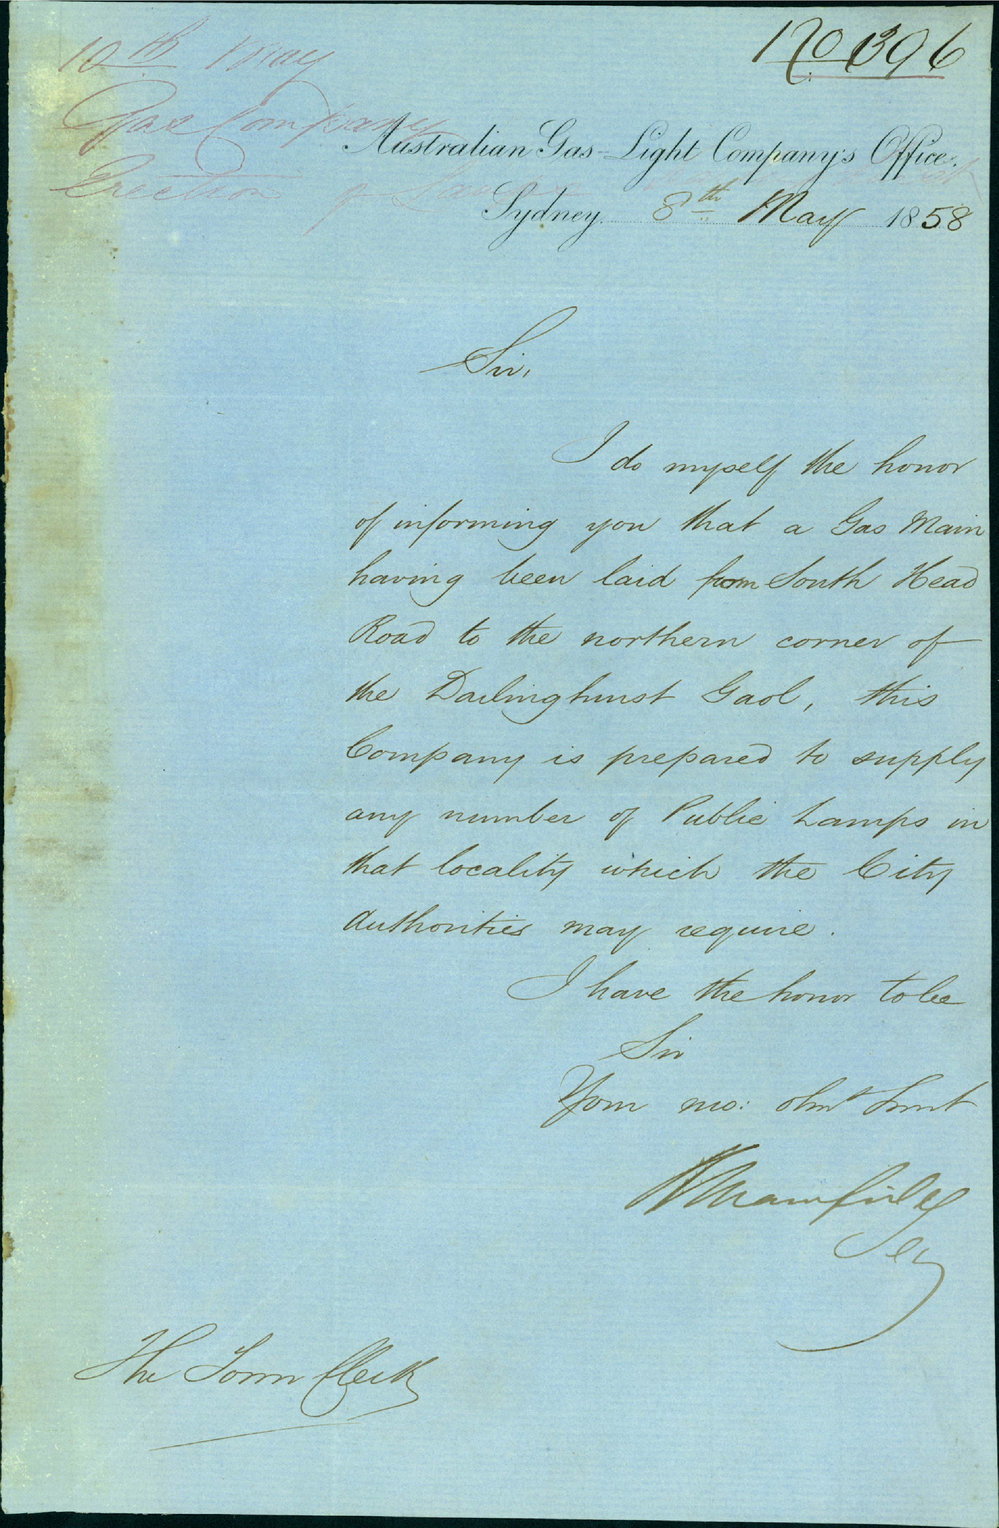 No 396
10th May
Gas Company
Erection of Lamps
Australian Gas-Light Company's Office.
Sydney. 8th May 1858
Sir,
I do myself the honor
of informing you that a Gas Main
having been laid from South Head
Road to the northern corner of
the Darlinghurst Gaol, this
Company is prepared to supply
any number of Public Lamps in
that locality which the City
Authorities may require.
I have the honor to be
Sir
Your mo: obnt Servt
R Mansfield
Secy
The Town Clerk